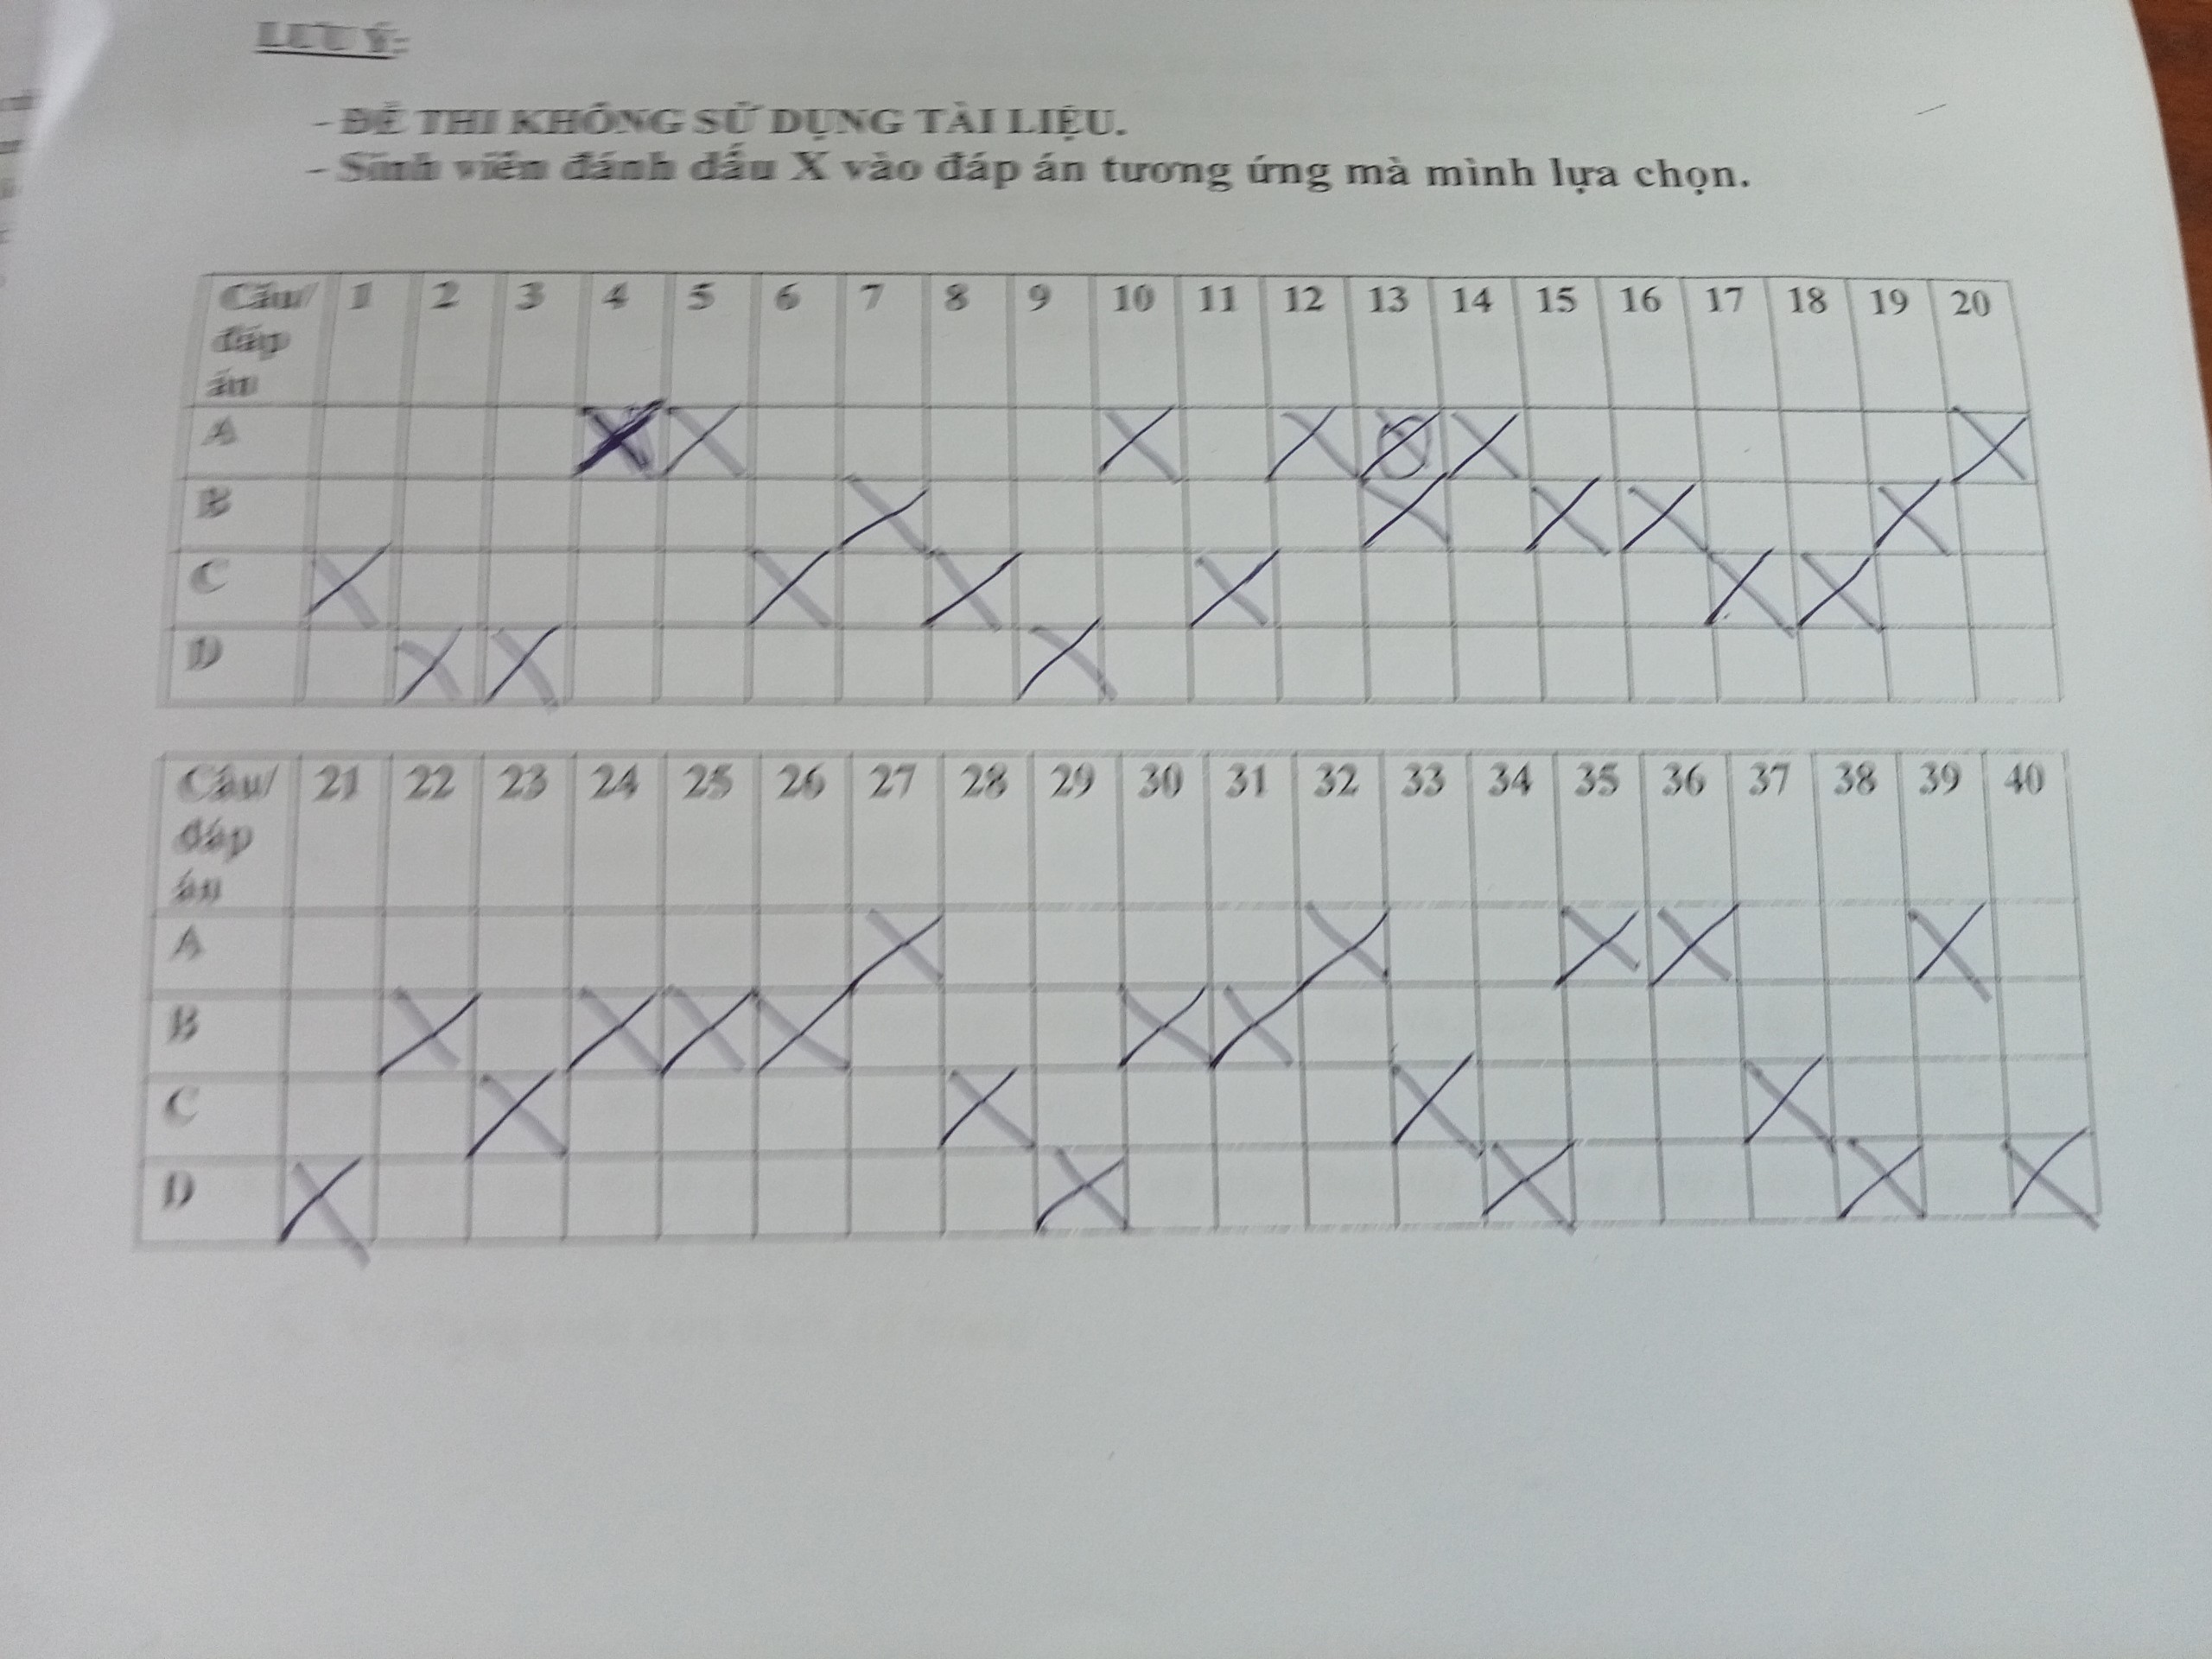 LƯU Ý:
- ĐỀ THI KHÔNG SỬ DỤNG TÀI LIỆU.
- Sinh viên đánh dấu X vào đáp án tương ứng mà mình lựa chọn.
Câu/ 1 2 3 4 5 6 7 8 9 10 11 12 13 14 15 16 17 18 19 20
đáp
án
A X X X X X X X
B X X X X X
C X X X X X X
D X X X
Câu/ 21 22 23 24 25 26 27 28 29 30 31 32 33 34 35 36 37 38 39 40
đáp
án
A X X X X X
B X X X X X X
C X X X X
D X X X X X